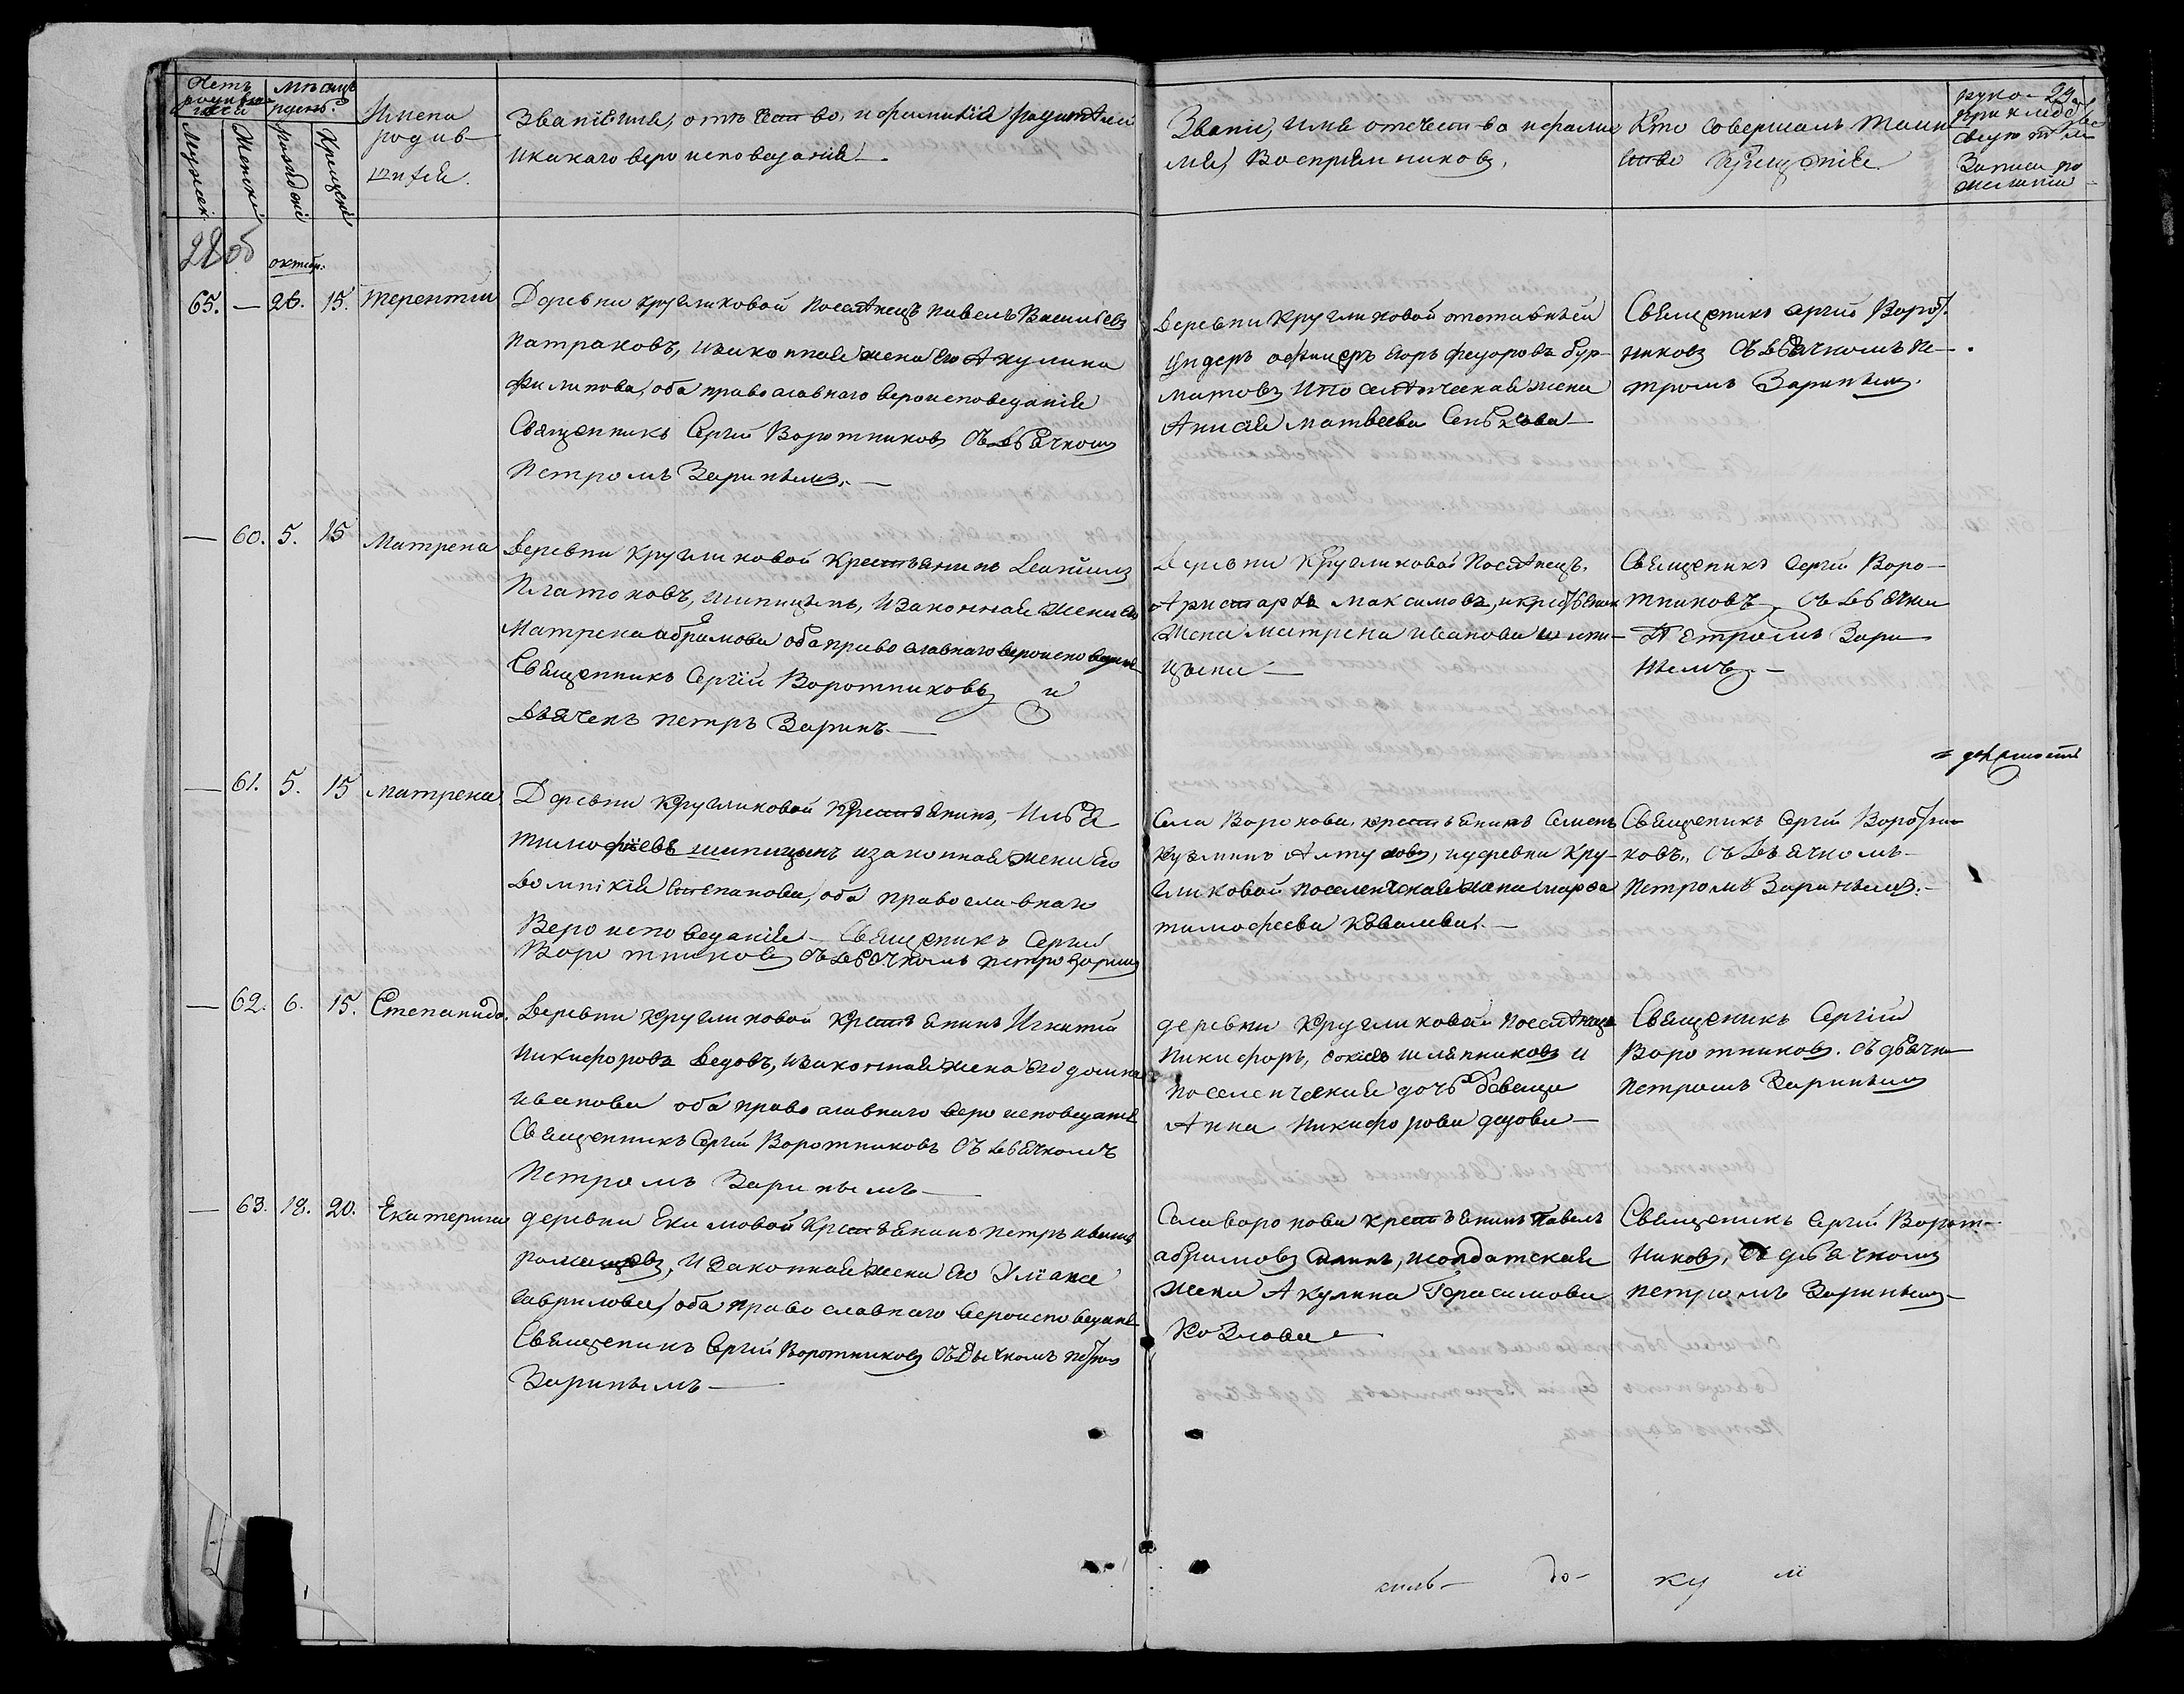 Счетъ родившихся
Мѣсяцъ и день
Мужеск.
Женскій
Рожденія
Крещенія
Имена
родив-
шихся.
Званіе имя, отечество, и фамилія родителей
и какаго вероисповеданія
Званіе, имя отечество и фами-
лія, Воспріемниковъ,
Кто совершалъ таин-
ство Крещенія
29
руко-
Записи по
желанію
28 об
октябр.
65. — 26. 15. Терентій
Деревни Кругликовой Поселенецъ Павелъ Васильевъ
Патраковъ, изаконная жена Его Акулина
Филипова, оба православнаго вероисповеданія
Священникъ Сергій Воротниковъ съ дьячкомъ
Петромъ Заринымъ. —
Деревни Кругликовой отставный
Ундеръ офицеръ Егоръ Федоровъ Бур-
матовъ и поселенческая жена
Анисія Матвеева
Священикъ Сергій Ворот-
никовъ съ дьячкомъ Пе-
тромъ Заринымъ.
— 60. 5. 15 Матрена
Деревни Кругликовой Крестьянинъ
Платоновъ, Шипицынъ, Изаконная жена его
Матрена Абрамова оба православнаго вероисповедан
Священникъ Сергій Воротниковъ и
Дьячекъ Петръ Заринъ. —
Деревни Кругликовой Поселенецъ
Аристархъ Максимовъ, и крестьянск
жена Матрена Иванова Шипи-
цына —
Священикъ Сергій Воро-
тниковъ, съ дьячком
Петромъ Зари
нымъ. —
— 61. 5. 15 Матрена
Деревни Кругликовой Крестьянинъ, Илья
Тимофѣевъ Шипицынъ изаконная жена Его
Домникія Степанова, оба православнаго
Вероисповеданія — Священикъ Сергій
Воротниковъ съ дьячкомъ Петро Зарин
Села Воронова крестьянинъ Семенъ
Кузминъ Алтуховъ, и деревни Кру-
гликовой поселенческая жена Марфа
Тимофеева Ковалева. —
Священикъ Сергій Воротни
ковъ, съ дьячкомъ
Петромъ Заринымъ. —
— 62. 6. 15. Степанида.
Деревни Кругликовой Крестьянинъ Игнатій
Никифоровъ Дедовъ, изаконная жена Его Домна
Иванова оба православнаго вероисповеданія
Священникъ Сергій Воротниковъ съ дьячкомъ
Петромъ Заринымъ —
деревни Кругликовой Поселенецъ
Никифоръ, Шляпниковъ и
поселенческая дочь девица
Анна Никифорова Дедова —
Священикъ Сергій
Воротниковъ. съ дьячко
Петромъ Заринымъ
— 63. 18. 20. Екатерина
деревни Екимовой Крестьянинъ Петръ Иванов
Романцовъ, изаконная жена Его Уліана
Гаврилова, оба православнаго вероисповедан
Священикъ Сергій Воротниковъ съ Дьячкомъ Петром
Заринымъ —
Села Воронова крестьянинъ Павелъ
Абрамовъ, исолдатская
жена Акулина Герасимова
Козлова —
Священикъ Сергій Ворот-
никовъ, съ дьячкомъ
Петромъ Заринымъ —
до- ку м